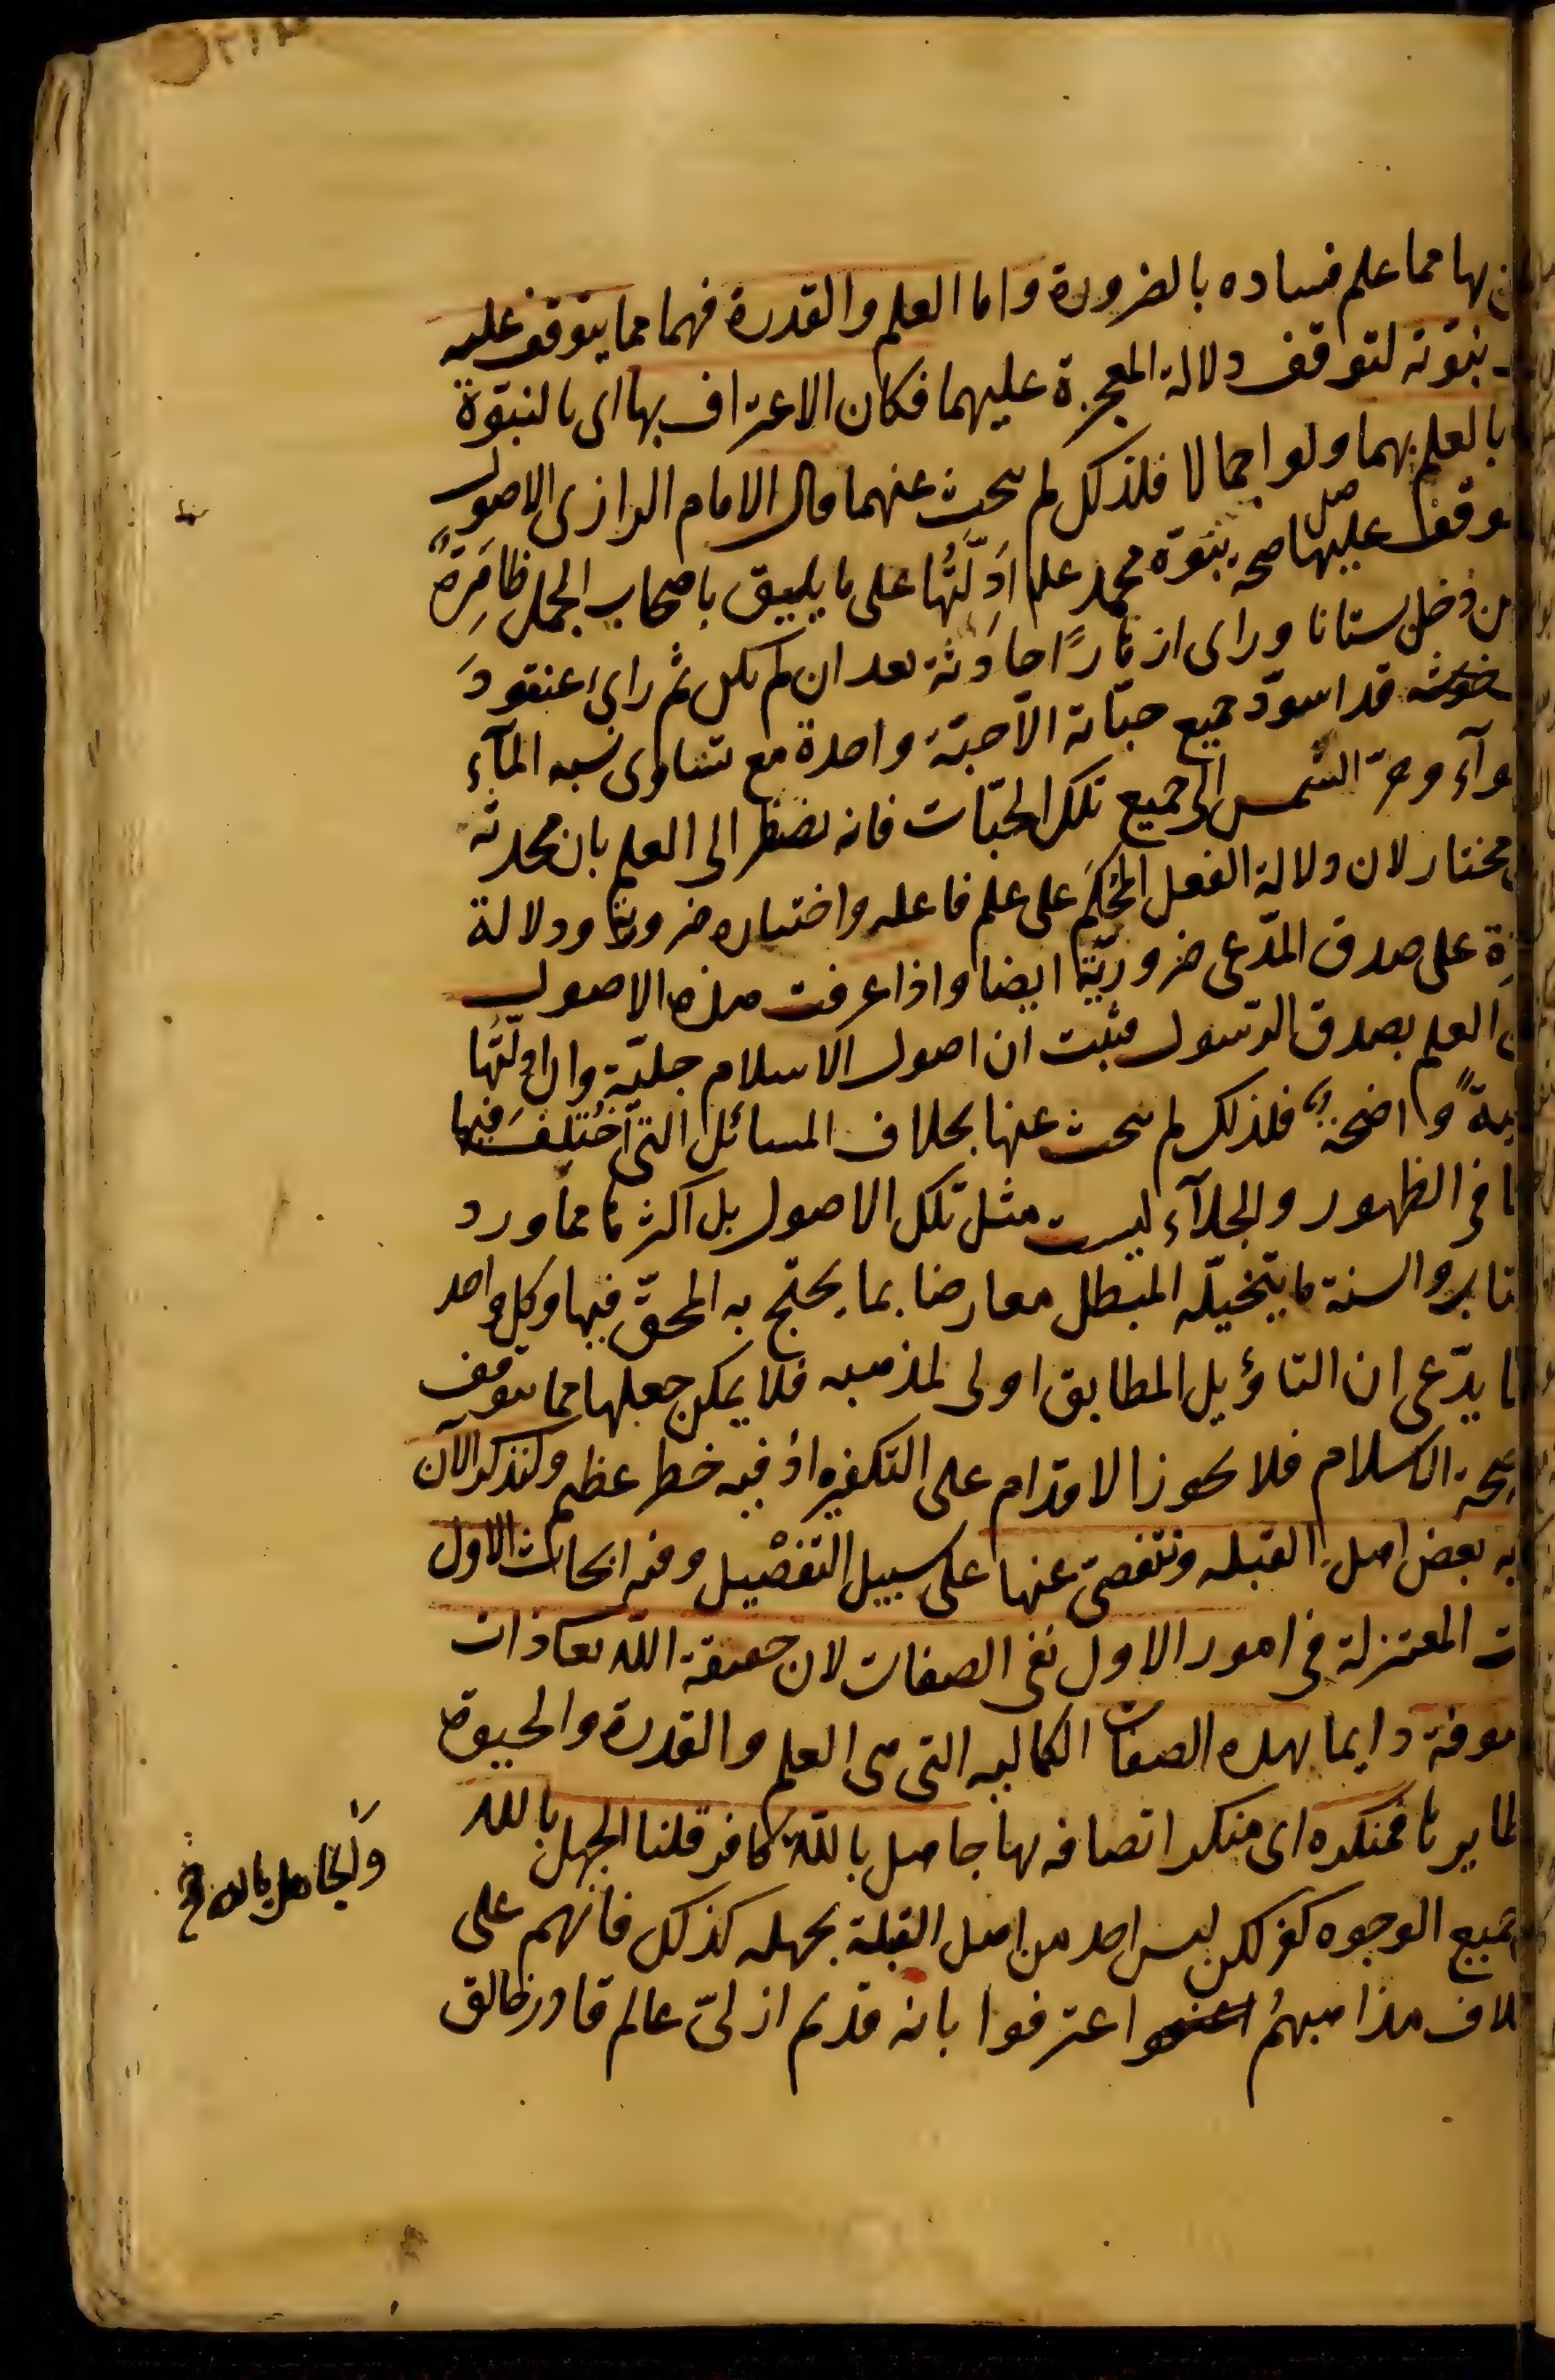 بها مما علم فساده بالضرورة واما العلم والقدرة فهما مما يتوقف عليه
نبوّته لتوقف دلالة المعجزة عليهما فكان الاعتراف بها اى بالنبوّة
بالعلم بهما ولو اجمالا فلذلك لم يبحث عنهما قال الامام الرازى الاصول
عليها صحة نبوّة محمد علم ادِلّتُها على ما يليق باصحاب الجمل ظاهِرةٌ
من دخل بستانا وراى ازهارًا حادثة بعد ان لم يكن ثم راى عنقودَ
قد اسودّ جميع حبّاته الا حبّة واحدة مع تساوى نسبة الماۤء
وحرّ الشمس الى جميع تلك الحبّات فانه يضطر الى العلم بان محدثه
مختار لان دلالة الفعل المُحكَم على علم فاعله واختياره ضرورية ودلالة
على صدق المدّعى ضروريّة ايضا واذا عرفت هذه الاصول
العلم بصدق الرسول فثبت ان اصول الاسلام جليّة وان ادلّتُها
واضحة فلذلك لم يبحث عنها بخلاف المسائل التى اختُلِفَ فيها
فى الظهور والجلاۤء ليست مثل تلك الاصول بل اكثرها مما ورد
والسنة ما يتخيّله المبطل معارضا بما يحتج به المحقّ فيها وكل واحد
يدّعى ان التاؤيل المطابق اولى لمذهبه فلا يمكن جعلها مما يتوقف
صحة الاسلام فلا يجوز الاقدام على التكفير اذ فيه خطر عظيم ولنذكر الآن
به بعض اهل القبله ونتفصّى عنها على سبيل التفصيل وفيه ابحاث الاول
المعتزلة فى امور الاول نفى الصفات لان حقيقة الله تعا ذات
موصوفة دايما بهذه الصفات الكماليه التى هى العلم والقدرة والحيوة
فمنكره اى منكر اتصافه بها جاهل بالله كافر قلنا الجهل بالله
جميع الوجوه كفر لكن ليس احد من اهل القبلة بجهله كذلك فانهم على
مذاهبهم اعترفوا بانه قديم ازلىّ عالم قادر خالق
والجاهل بالله خ